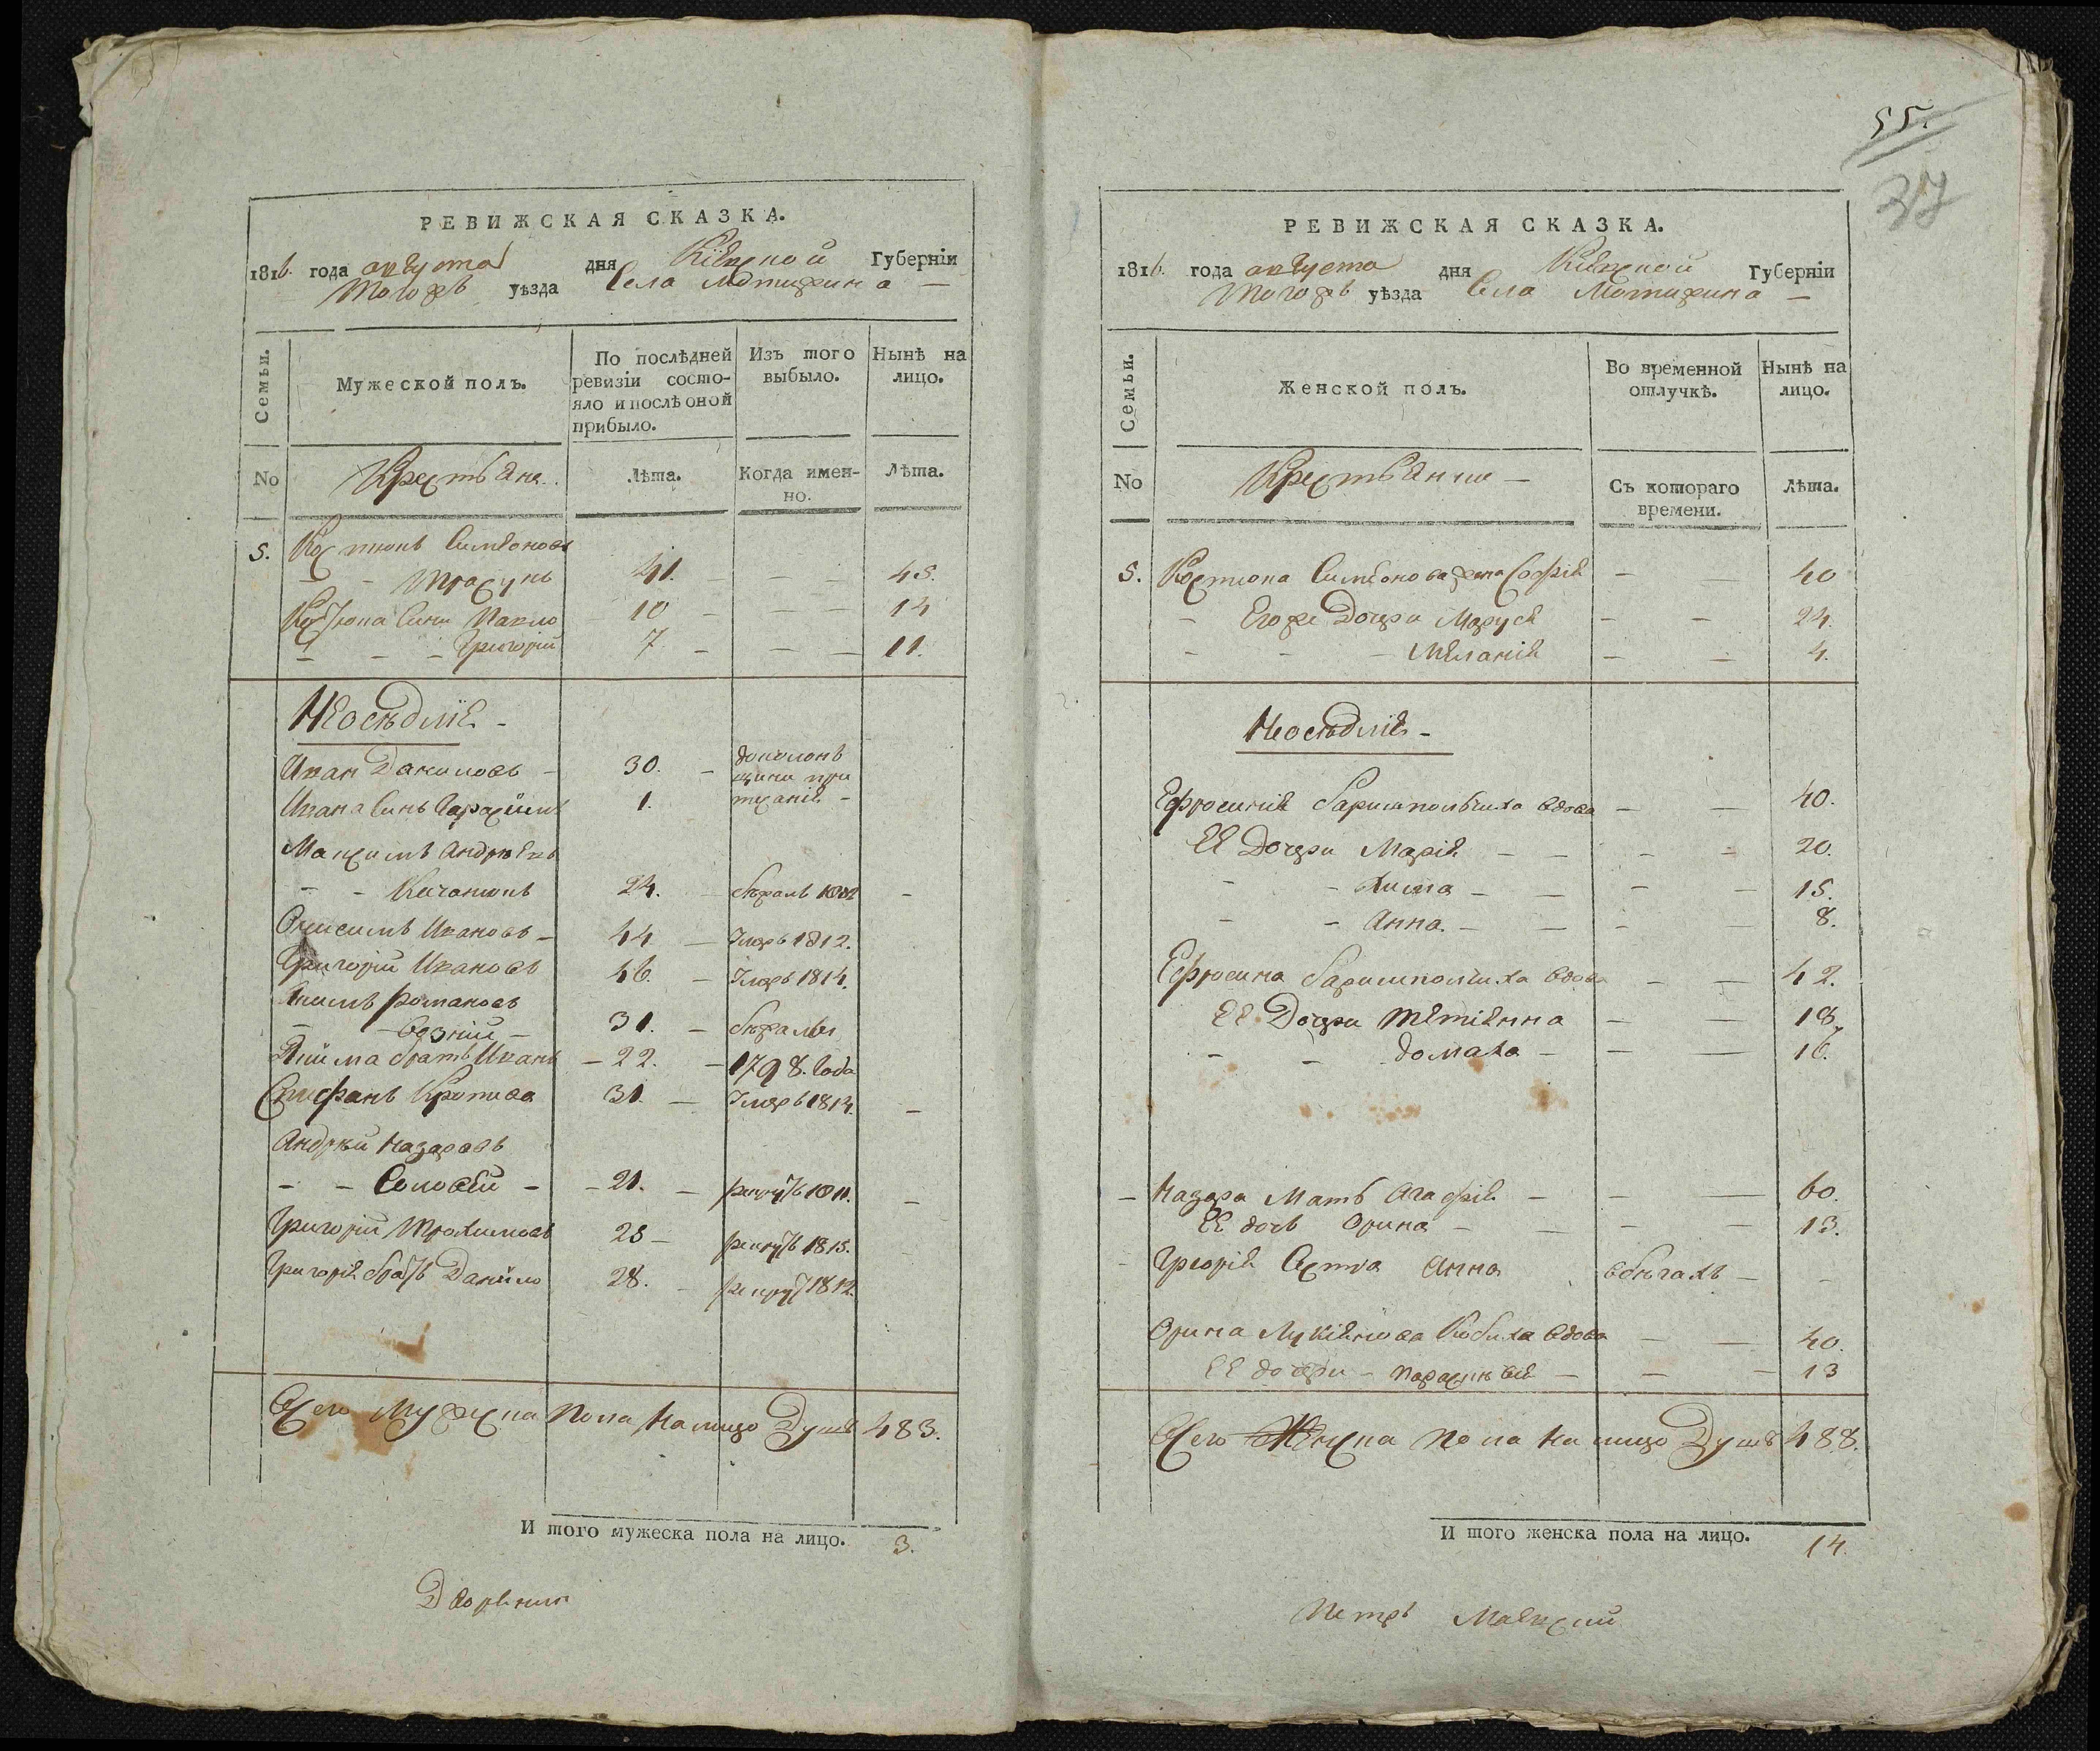 РЕВИЖСКАЯ СКАЗКА.
1816. года августа дня Кіевской Губерніи
Тогожъ уѣзда Села Мотижина —
Семьи.
Мужеской полъ.
По послѣдней ревизіи состо-
яло и послѣ оной
прибыло.
Изъ того выбыло.
Нынѣ на лицо.
No
Крестьяне.
Лѣта.
Когда имен-
но.
Лѣта.
5. Костюкъ Симеоновъ
41. — — 45.
Костюка Сини Павло 10 — — — 14
— — — Григорій 7 — — — 11.
Неосѣдліе —
Иван Даниловъ — 30. —
Ивана Синъ Герасимъ 1.
Максимъ Андрѣевъ
24. —
Онисимъ Ивановъ — 44 — 1812.
Григорій Ивановъ 46. — 1814.
Романовъ
31. —
братъ Иванъ — 22. — 1798. Года
31. — 1814. —
Андрѣй Назаровъ
— — Соловей — — 21. — рекрутъ 1811. —
Григорій Трохимовъ 25 — рекрутъ 1815.
Григорія братъ Данило 28. — рекрутъ 1812.
Всего Мужеска Пола На лицо Душъ 483.
И того мужеска пола на лицо. 3.
Дворянинъ
55.
37
РЕВИЖСКАЯ СКАЗКА.
1816. года августа дня Кіевской Губерніи
Тогожъ уѣзда Села Мотижина —
Семьи.
Женской полъ.
Во временной
отлучкѣ.
Нынѣ на
лицо.
No
Крестьянки —
Съ котораго
времени.
Лѣта.
5. Костюка Симеонова жена Софія — — 40
— Егоже Дочери Маруся — — 24.
— — — Меланія — — 4.
Неосѣдліе —
Ефросинія Баришпольчиха вдова — — 40.
Ее Дочери Марія — — — — 20.
— — — — — — 15.
— — Анна — — — — 8.
Ефросина Баришпольчиха вдова — — 42.
Ее Дочери Тетіянна — — 18.
— — Домаха — — — 16.
— Назара Мать Агафія — — — 60.
Ее дочь Орина — — — — 13.
— Григорія Сестра Анна вбѣгахъ — —
Орина Лукіянова вдова — — 40.
Ее дочери — — — — 13
Всего Женска Пола На лицо Душъ 488.
И того женска пола на лицо. 14.
Петръ